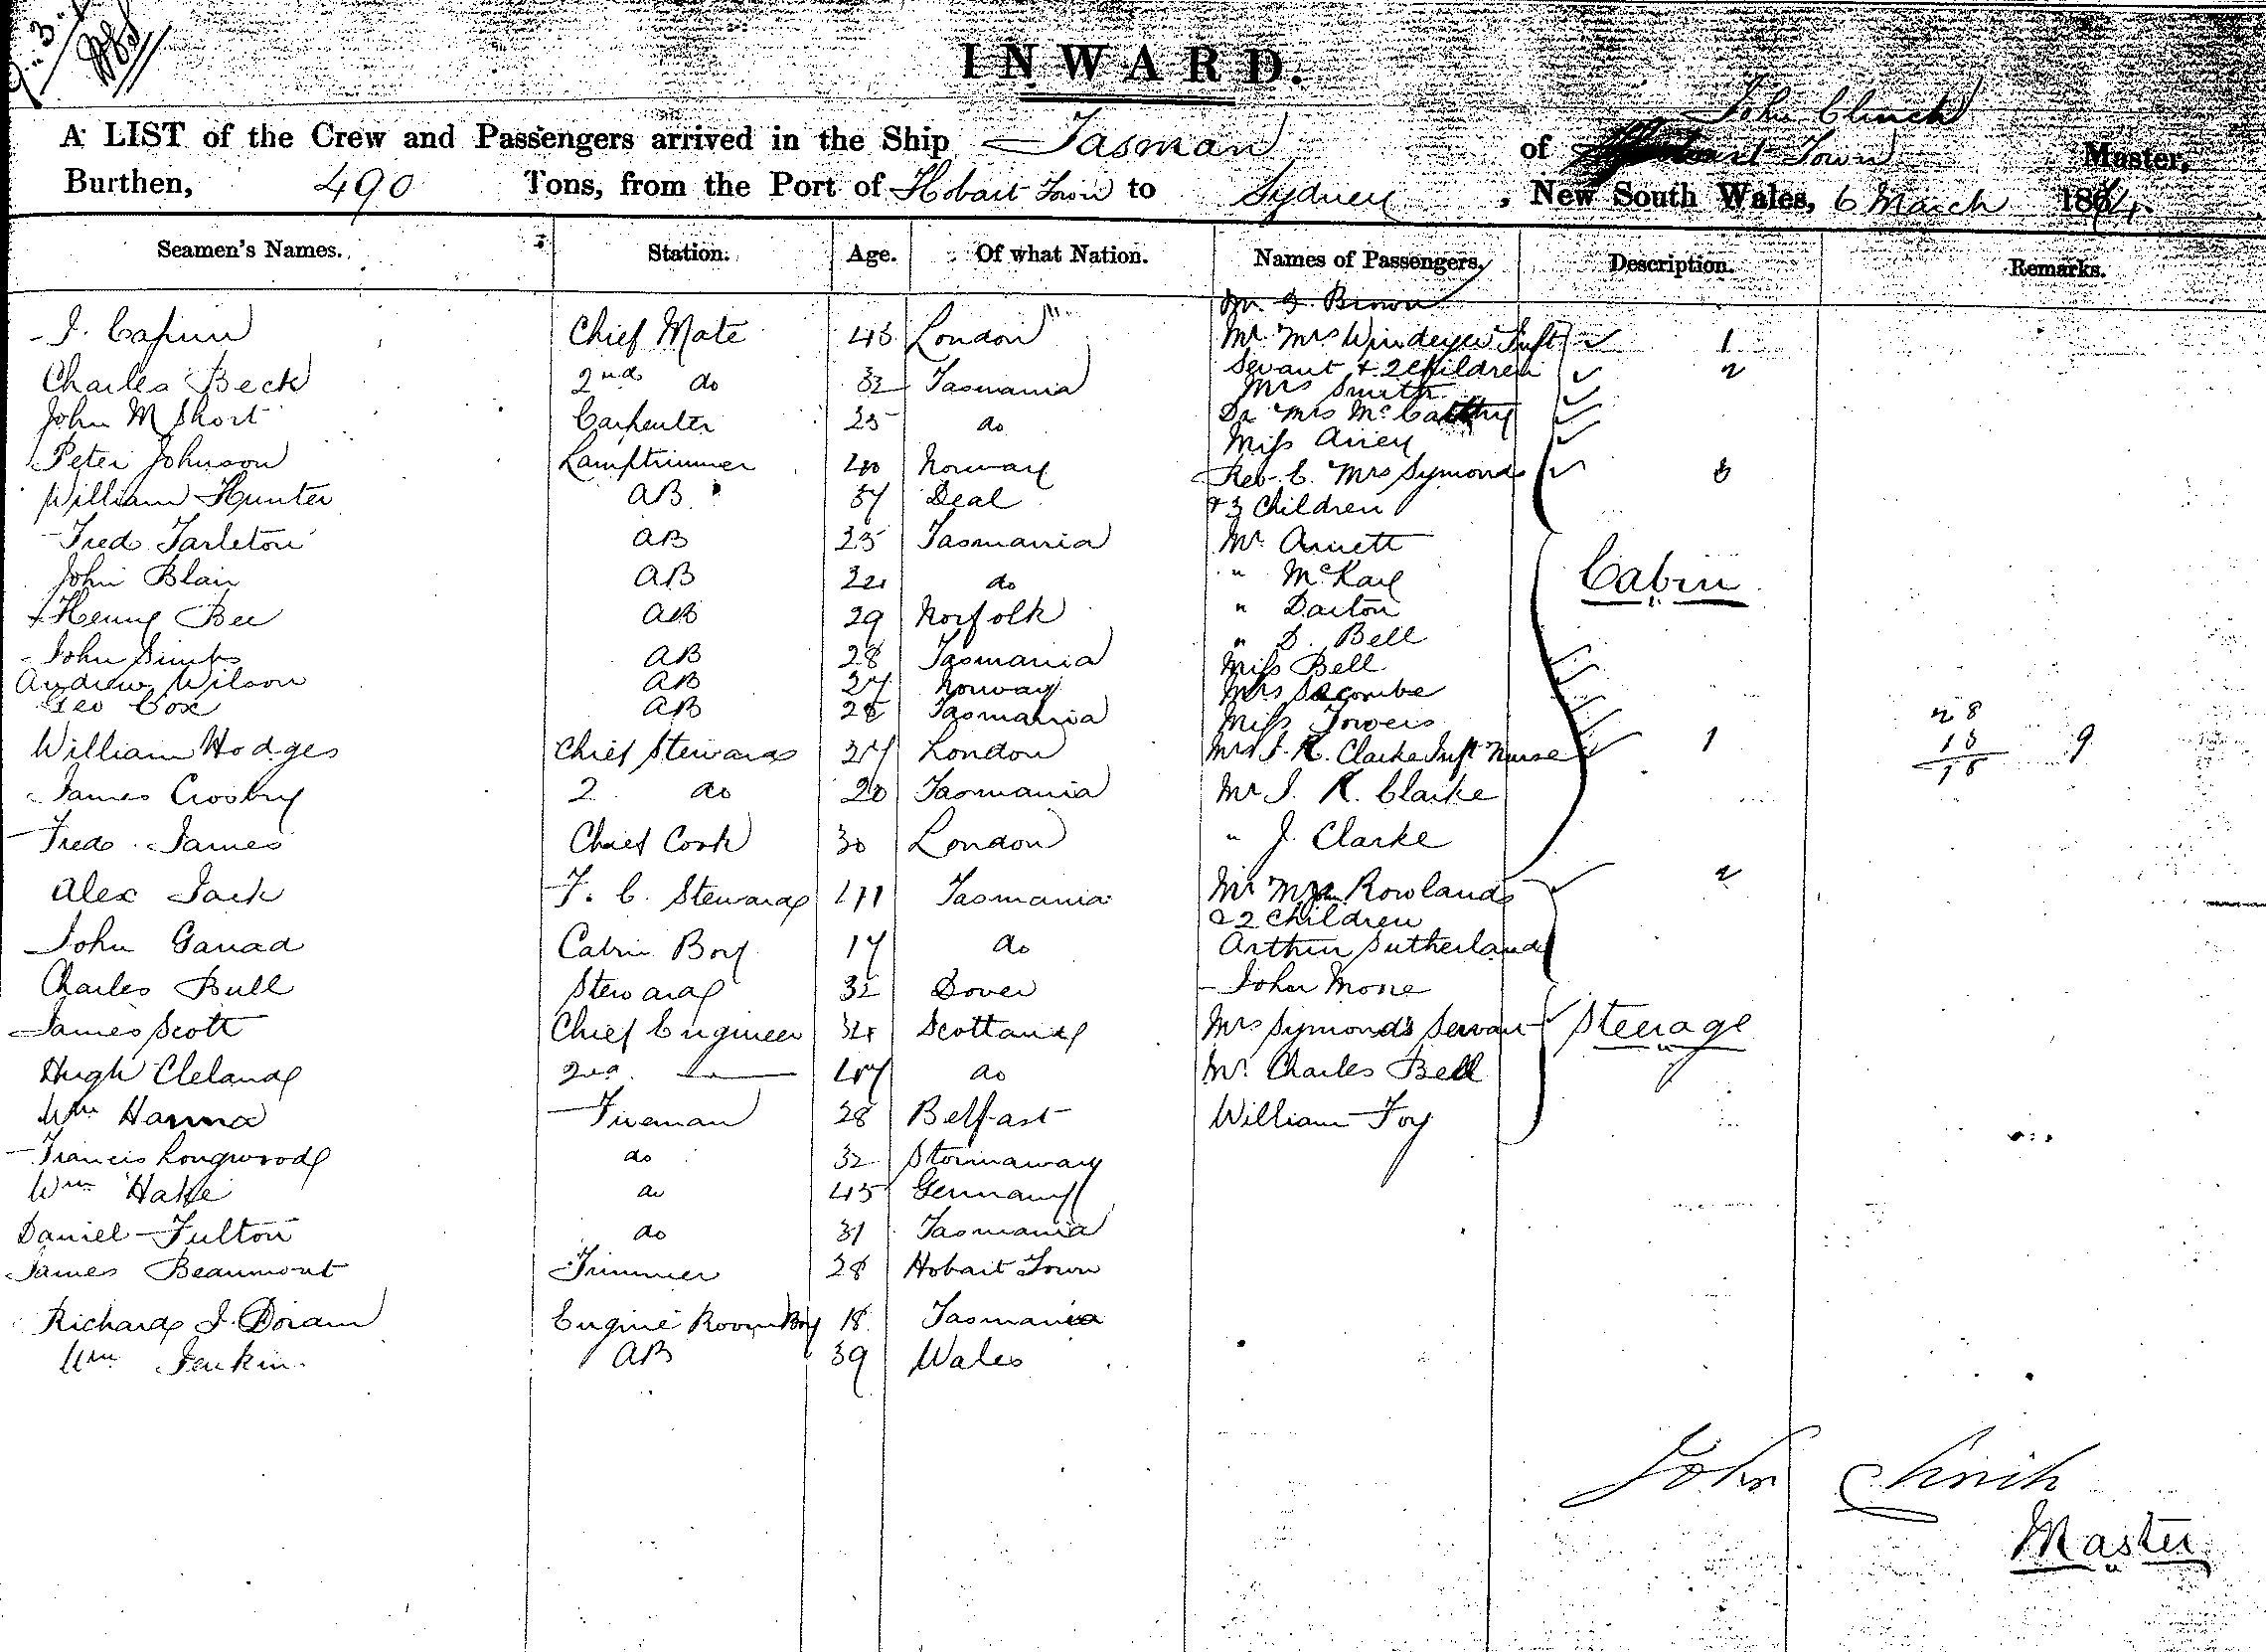 INWARD.
John Clinch
A LIST of the Crew and Passengers arrived in the Ship Tasman of Hobart Town Master,
Burthen, 490 Tons, from the Port of Hobart Town to Sydney, New South Wales, 6 March 18
Seamen's Names. Station. Age. Of what Nation. Names of Passengers. Description. Remarks.
Brown
Chief Mate London Mr Mrs Windeyer Inft 1
Servant + 2 Children 2
Charles Beck 2nd do 32 Tasmania Mrs Smith
John M Short Carpenter 25 do Dr Mrs McCarthy
Miss Airey
Peter Johnson Lamptrimmer 40 Norway Rev. C. Mrs Symonds 3
William Hunter AB 37 Deal + 3 Children
Fred Tarleton AB 25 Tasmania Mr Arnett
John Blair AB do " McKay
Henry Bee AB 29 Norfolk " Darton
" D. Bell
John Simes AB 28 Tasmania Miss Bell
Andrew Wilson AB 27 Norway Mrs Secombe
Geo Cox AB 28 Tasmania Miss Towers
William Hodges Chief Steward 37 London Mrs J. R. Clarke Inft Nurse 1 9
James Crosby 2 do 20 Tasmania Mr J. R. Clarke
Cabin
Fred James Chief Cook 30 London " J. Clarke
Alex Jack F. C. Steward 41 Tasmania Mr Mrs Rowlands 2
& 2 Children
John Cabin Boy 17 do Arthur Sutherland
Charles Bull Steward 32 Dover John Mone
James Scott Chief Engineer 34 Scotland Mrs Symonds Servant Steerage
Hugh Cleland 2nd 47 do Mr Charles Bell
Wm Hanna Fireman 28 Belfast William Foy
Francis Longwood do 32 Stornaway
Wm Hake do 45 Germany
Daniel Fulton do 31 Tasmania
James Beaumont Trimmer 28 Hobart Town
Richard J. Doram Engine Room Boy 18 Tasmania
Wm Jenkin AB 39 Wales
John Clinch
Master